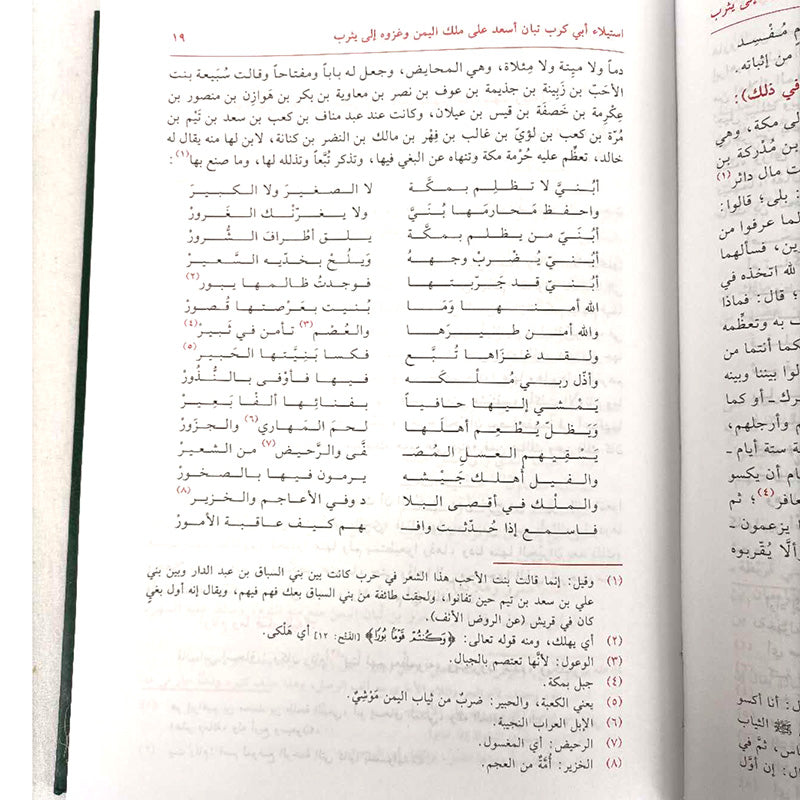 استيلاء أبي كرب تبان أسعد على ملك اليمن وغزوه إلى يثرب ١٩
دماً ولا ميتة ولا مِئلاة، وهي المحايض، وجعل له باباً ومفتاحاً وقالت سُبَيعة بنت
الأحَبّ بن زَبِينة بن جذيمة بن عوف بن نصر بن معاوية بن بكر بن هَوازِن بن منصور بن
عِكْرِمة بن خَصَفَة بن قيس بن عيلان، وكانت عند عبد مناف بن كعب بن سعد بن تَيْم بن
مُرّة بن كعب بن لؤيّ بن غالب بن فِهْر بن مالك بن النضر بن كنانة، لابن لها منه يقال له
خالد، تعظِّم عليه حُرْمة مكة وتنهاه عن البغي فيها، وتذكر تُبَّعاً وتذلله لها، وما صنع بها(١):
أبُنـيَّ لا تـظـلِـم بـمـكَّـة لا الـصغيـرَ ولا الـكـبـيـرَ
واحـفـظ مَـحـارِمـهـا بُـنَـيَّ ولا يـغـرّنْـك الـغَـرورْ
أبُـنَـيّ مـن يـظـلم بـمـكّـة يـلـق أطْـرافَ الـشُّـرورْ
أبُـنـيّ يُـضْـرَبْ وجـهـهُ وَيَـلُـحْ بـخـدّيـه الـسَّـعـيـرْ
أبُـنـيّ قـد جَـرّبـتـهـا فـوجدتُ ظالـمهـا يبور(٢)
الله أمـنـهـا وَمَـا بُنـيت بعَـرْصتهـا قُـصورْ
والله أمـن طـيـرَهـا والعُصْم(٣) تأمن في ثَبيرْ(٤)
ولـقـد غـزَاهـا تُـبَّـع فـكـسـا بَـنِـيَّـتـهـا الحَبيرْ(٥)
وأذّل ربـي مُـلْـكـه فـيـهـا فـأوْفـى بـالـنُّـذورْ
يَـمْـشـي إلـيـهـا حـافـيـاً بـفـنـائـهـا ألـفـا بَـعـيـرْ
وَيَـظـلّ يُـطْـعِـم أهـلَـهـا لحمَ المهاري(٦) والجزورْ
يَـسْـقِـيـهـم الـعسـل الـمُـصَـ فَّى والرَّحيضَ(٧) من الشعيرْ
والـفـيـل أهـلـك جَـيْـشـه يـرمـون فـيـهـا بـالـصخورْ
والـمـلْـك فـي أقـصـى الـبـلا د وفي الأعاجم والخزير(٨)
فـاسـمـع إذا حُـدّثـت وافـ ـهم كيف عاقبة الأمورْ
(١) وقيل: إنما قالت بنت الأحب هذا الشعر في حرب كانت بين بني السباق بن عبد الدار وبين بني
علي بن سعد بن تيم حين تفانوا، ولحقت طائفة من بني السباق بعك فهم فيهم، ويقال إنه أول بغي
كان في قريش (عن الروض الأنف).
(٢) أي يهلك، ومنه قوله تعالى: ﴿وَكُنتُمْ قَوْمًا بُورًا﴾ [الفتح: ١٢] أي هَلْكى.
(٣) الوعول: لأنَّها تعتصم بالجبال.
(٤) جبل بمكة.
(٥) يعني الكعبة، والحبير: ضربٌ من ثياب اليمن مَوْشِيٌ.
(٦) الإبل العراب النجيبة.
(٧) الرحيض: أي المغسول.
(٨) الخزير: أُمَّةٌ من العجم.